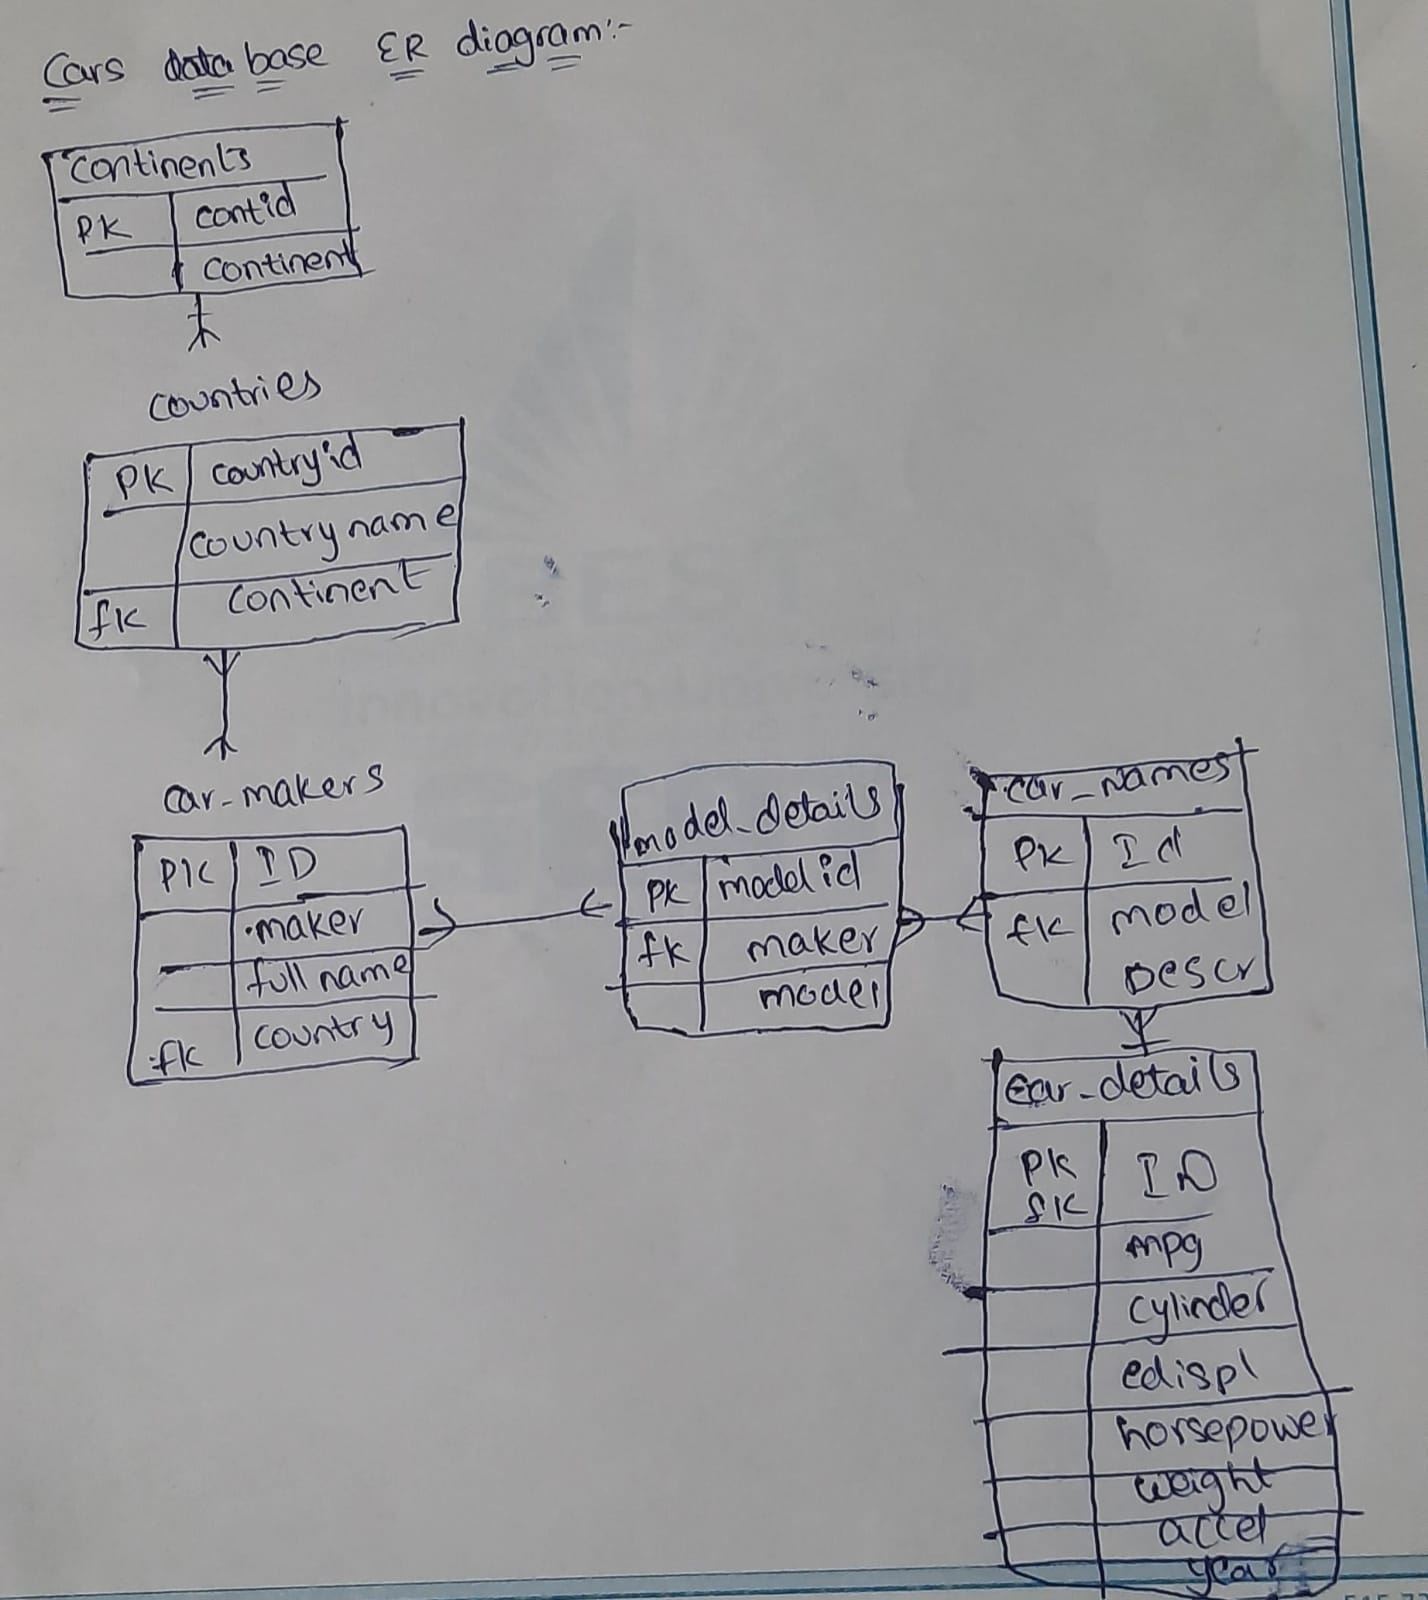 Cars data base ER diagram:-
Continents
PK contid
continent
countries
PK countryid
country name
fk continent
car-makers
PK ID
maker
full name
fk country
model-details
PK model id
fk maker
model
car-names
PK Id
fk model
Descr
car-details
PK
fk ID
mpg
cylinder
edispl
horsepower
weight
accel
year